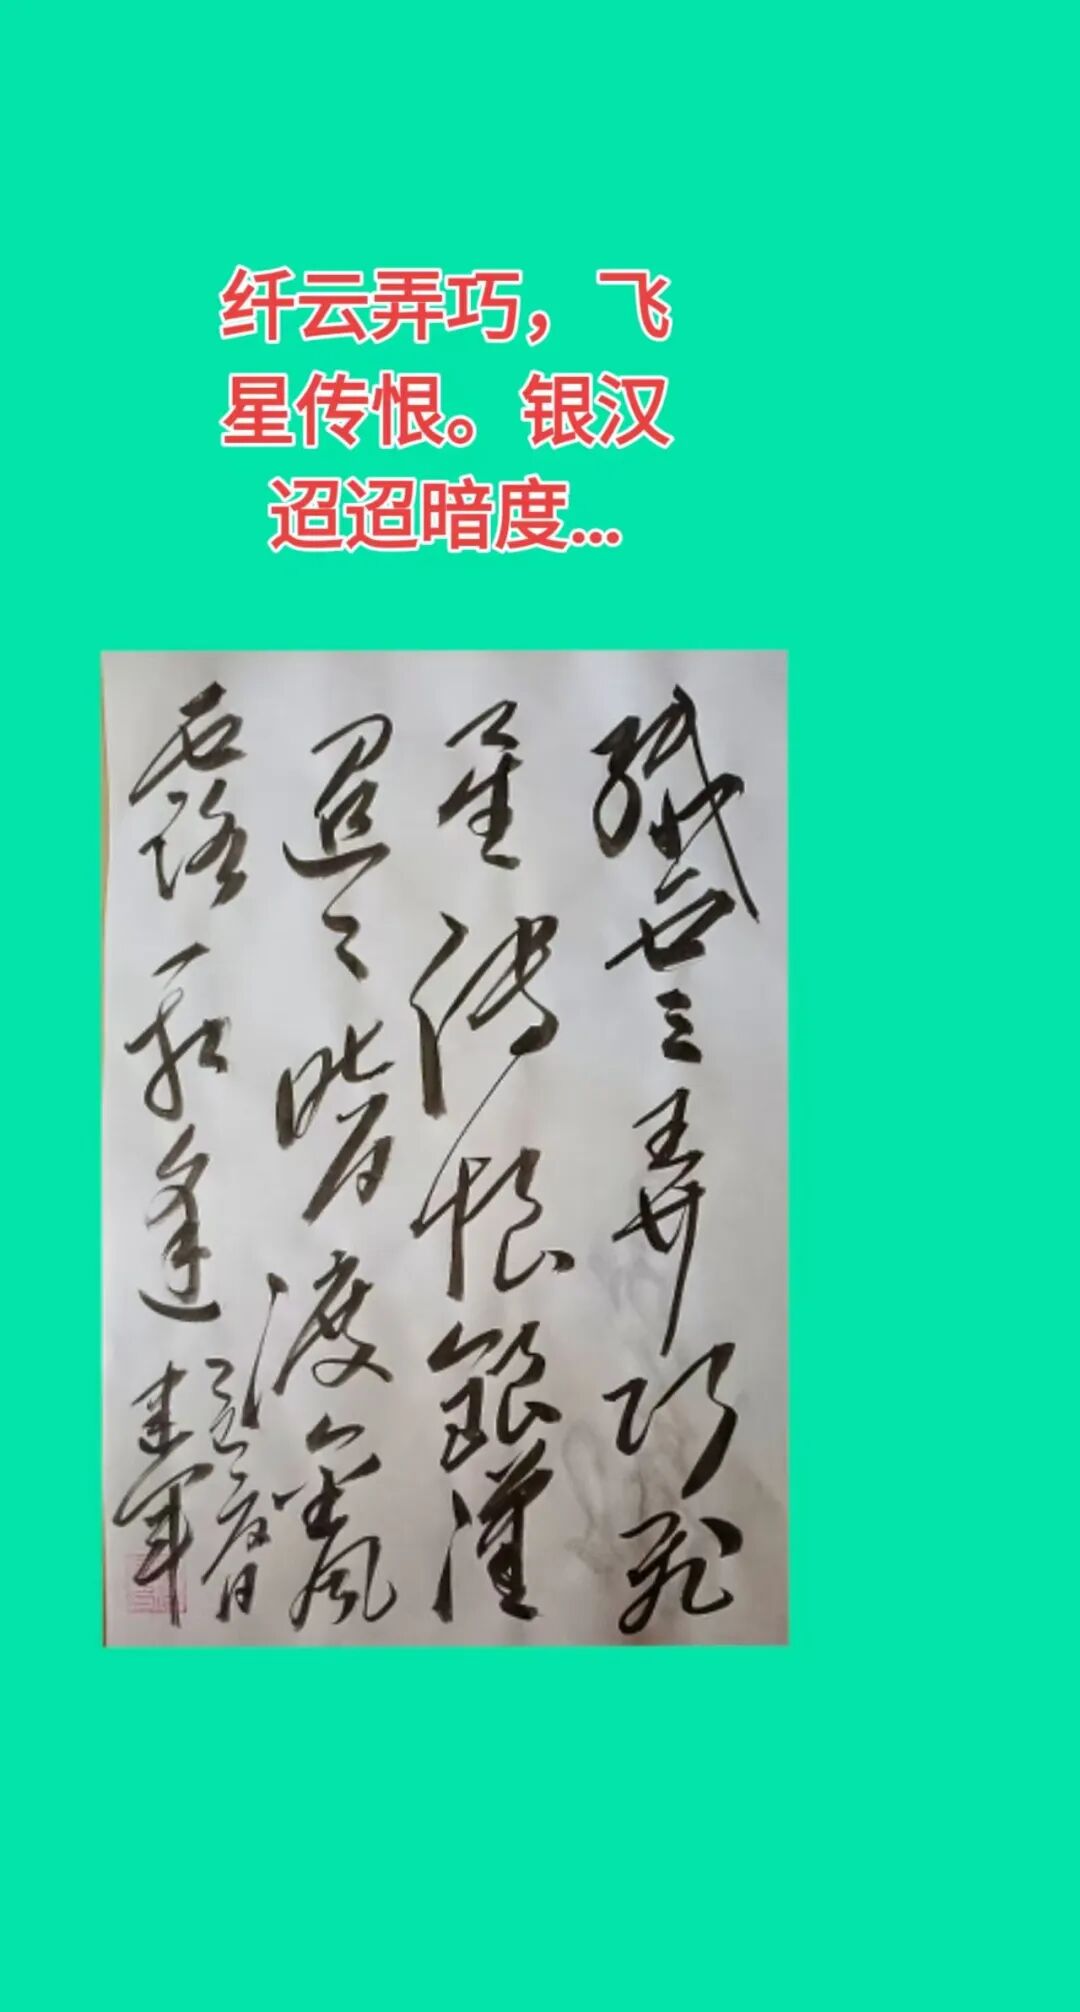 纤云弄巧，飞
星传恨。银汉
迢迢暗度...
纖云弄巧飛
星傳恨銀漢
迢〻暗渡金風
玉露一相逢
建軍